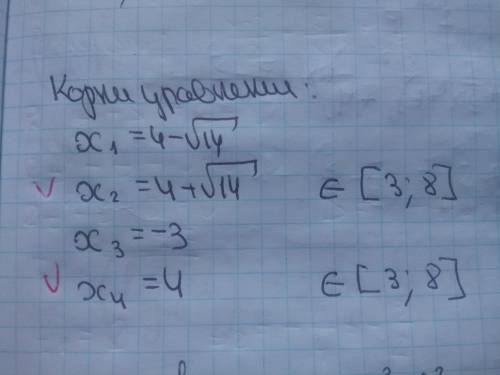 Корни уравнении:
x₁ = 4-√14
v x₂ = 4+√14 ∈ [3; 8]
x₃ = -3
v x₄ = 4 ∈ [3; 8]